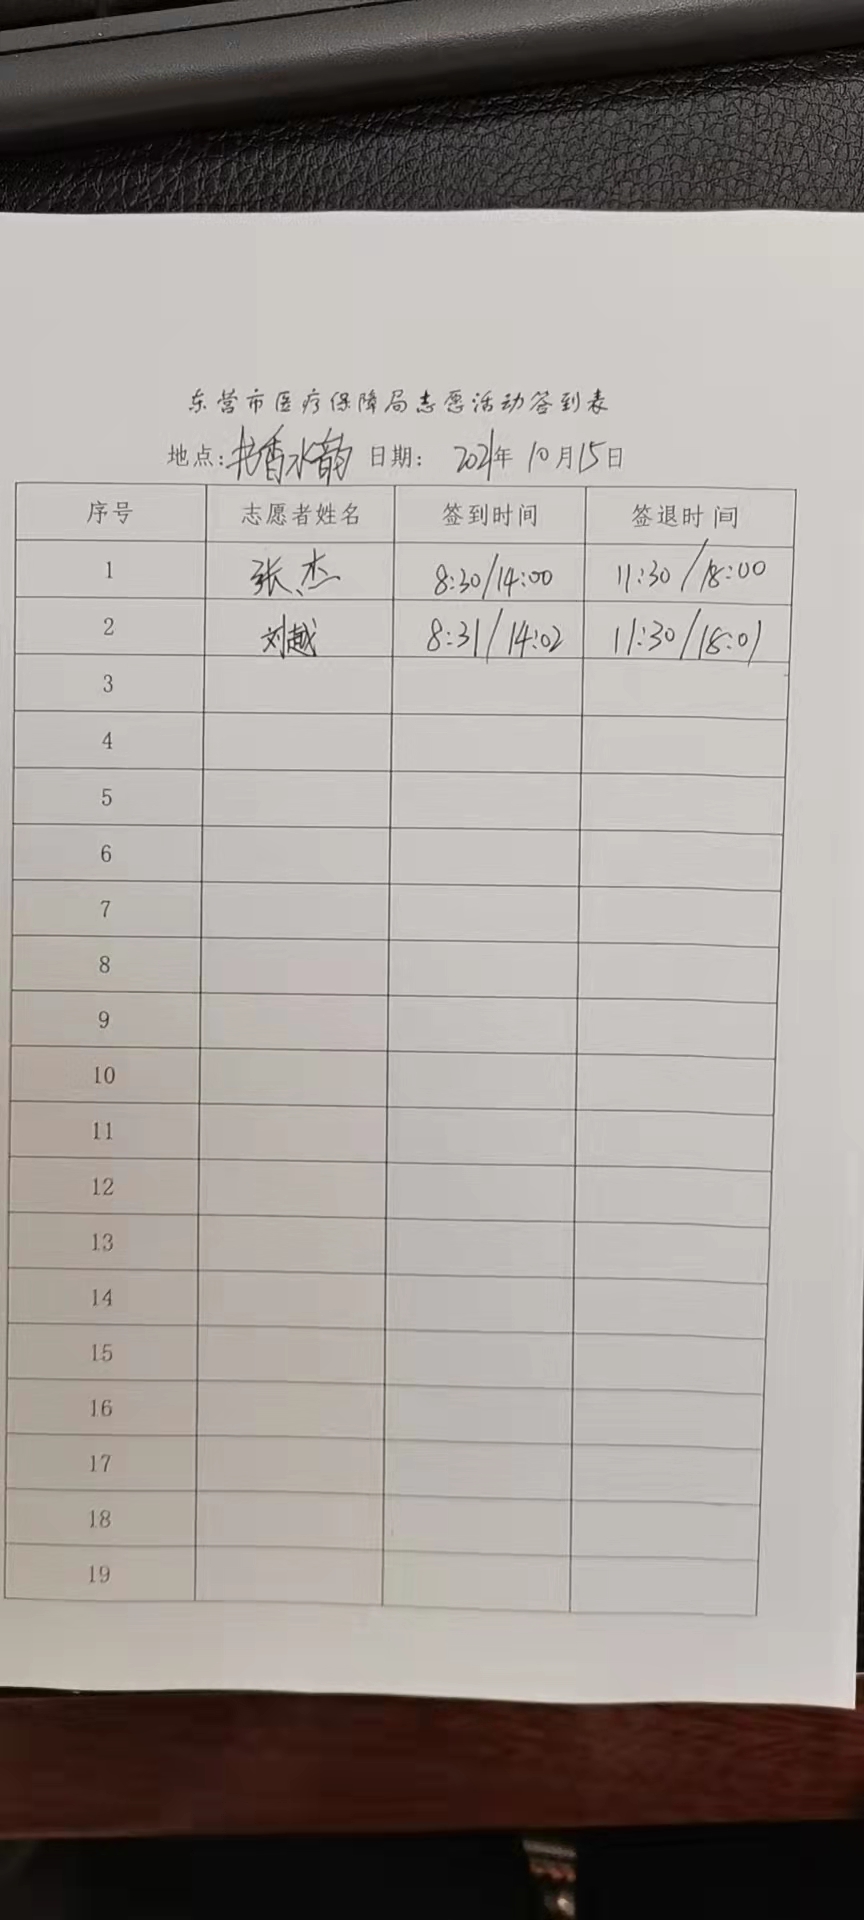 东营市医疗保障局志愿活动签到表
地点:书香水韵 日期: 2021年10月15日
序号 志愿者姓名 签到时间 签退时间
1 张杰 8:30/14:00 11:30/18:00
2 刘越 8:31/14:02 11:30/18:01
3
4
5
6
7
8
9
10
11
12
13
14
15
16
17
18
19